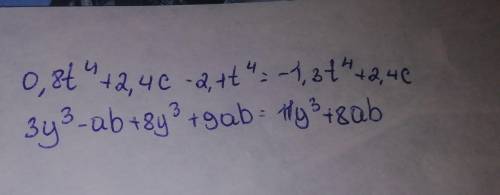 0,8t⁴+2,4c -2,1t⁴=-1,3t⁴+2,4c
3y³-ab+8y³+9ab=11y³+8ab